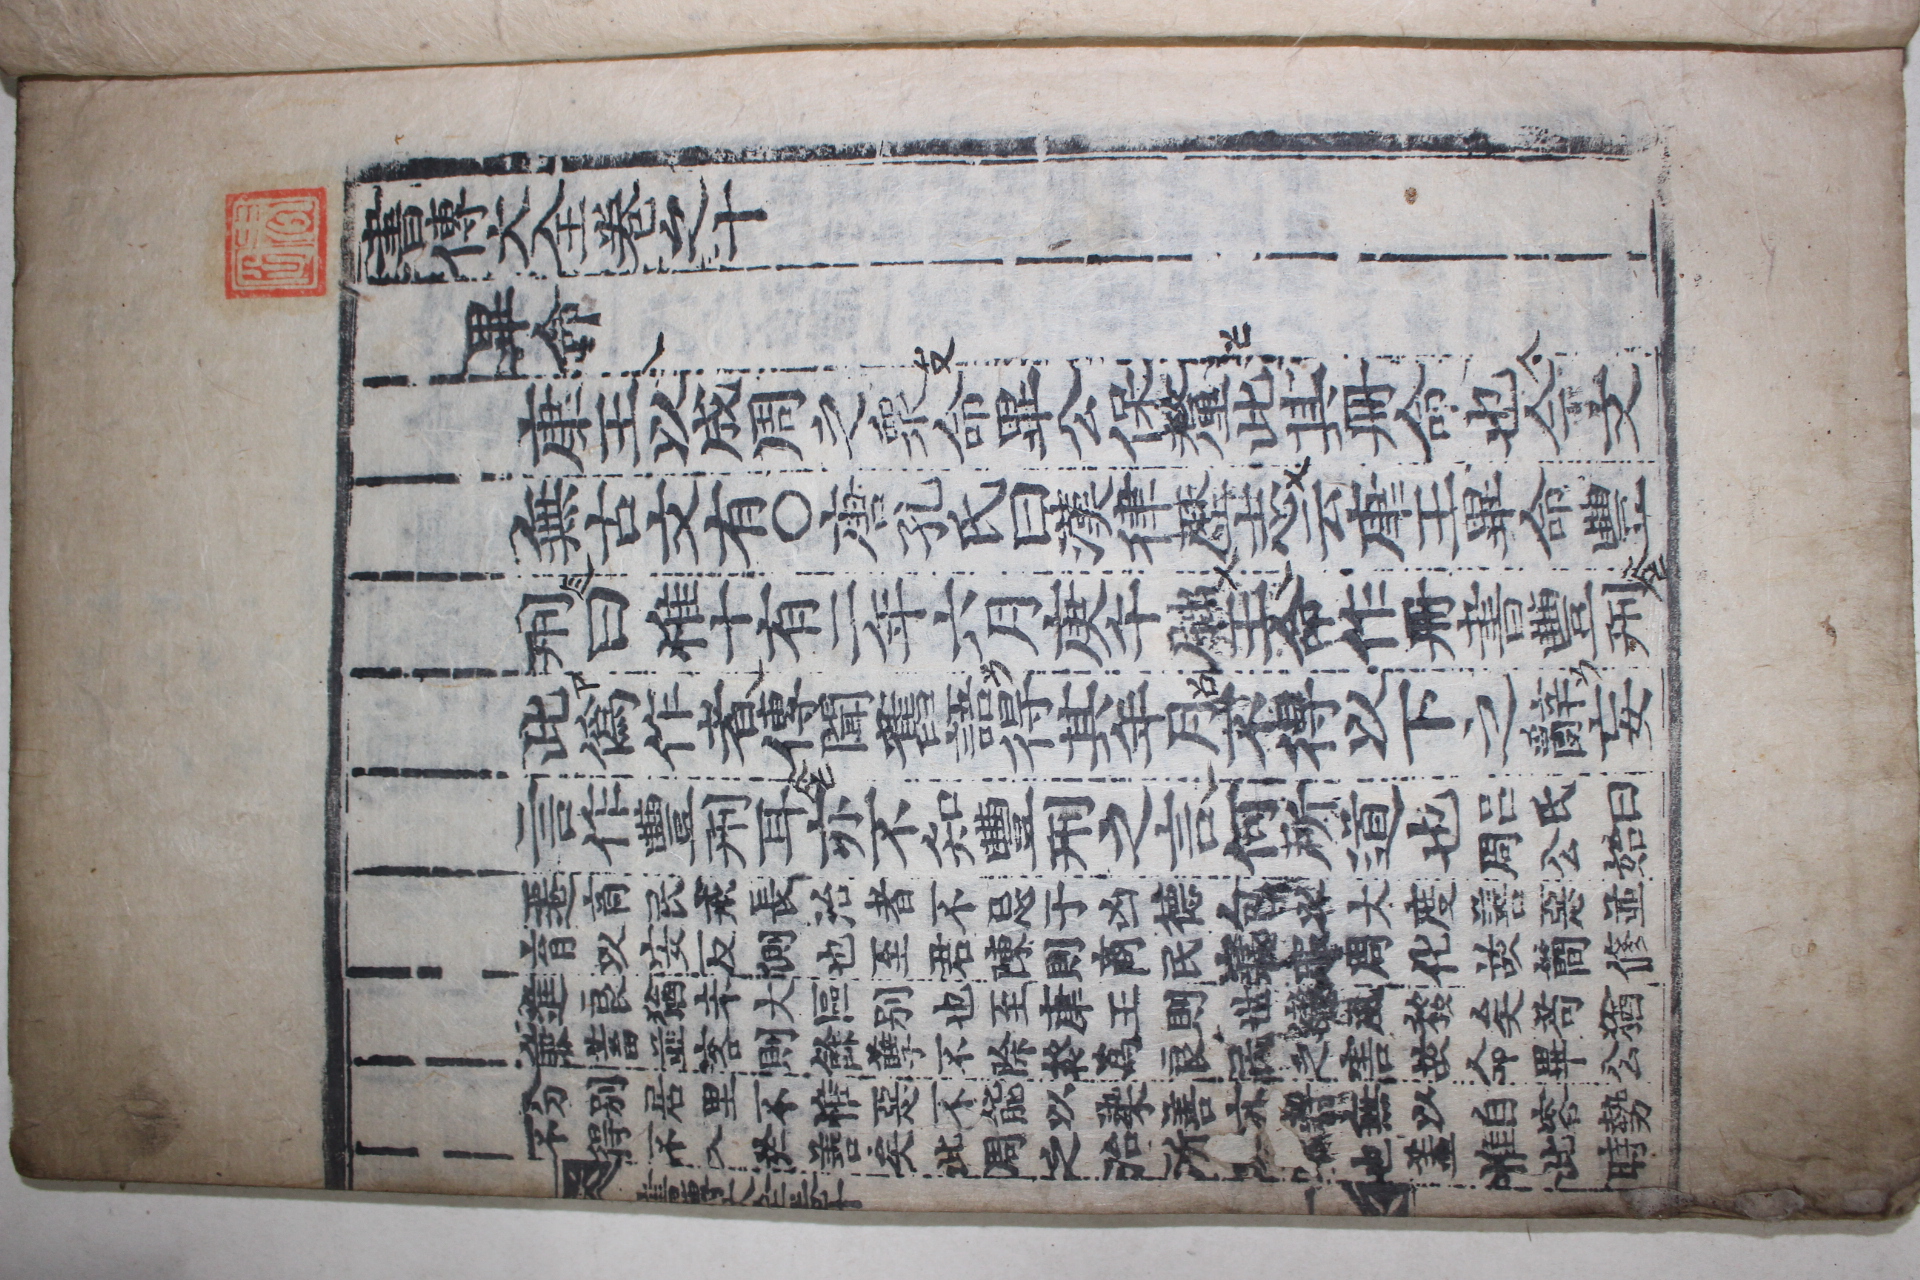 書傳大全卷之十
畢命
康王以成周之衆命畢公保釐此其冊命也今文
無古文有○唐孔氏曰漢律歷志云康王畢命豐
刑曰惟十有二年六月庚午朏王命作冊書豐刑
此偽作者傳聞舊語得其年月不得以下之辭妄
言作豐刑耳亦不知豐刑之言何所道也
呂氏曰
周公始
遷商民戒長治者不忌于凶德包以大度善惡並
育以安反側也至君陳則商民周化故簡修
進良猶未大區别也至康王則世變風移矣苟猶
兼蓄並容則餘孽不除終為良民之害故命畢公
分别居里不惟惡不能以染善亦將無以自容勢
不得不入於善矣此周之治所也盖惟此時
書傳大全卷十